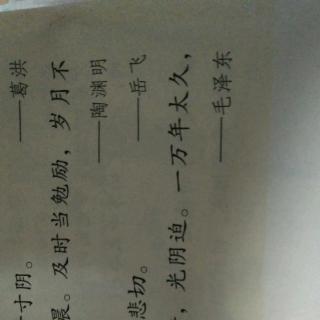 寸阴。 ——葛洪
晨。及时当勉励，岁月不
——陶渊明
悲切。 ——岳飞
，光阴迫。一万年太久，
——毛泽东